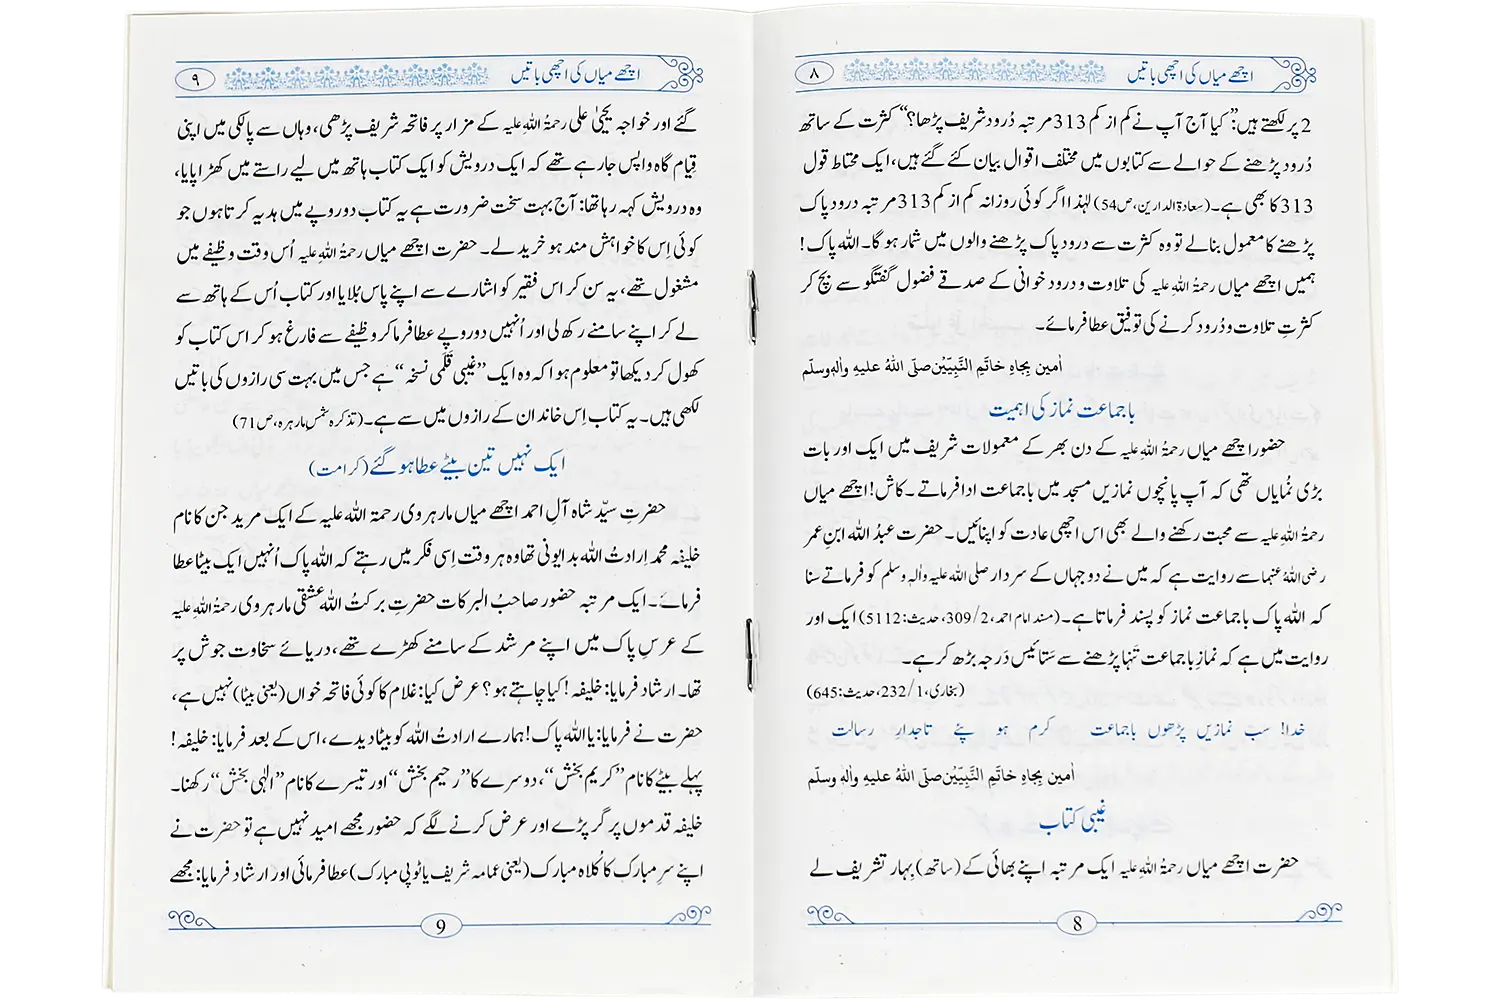 اچھے میاں کی اچھی باتیں
۸
2 پر لکھتے ہیں: ”کیا آج آپ نے کم از کم 313 مرتبہ دُرود شریف پڑھا؟“ کثرت کے ساتھ
دُرود پڑھنے کے حوالے سے کتابوں میں مختلف اقوال بیان کئے گئے ہیں، ایک محتاط قول
313 کا بھی ہے۔ (سعادۃ الدارین، ص54) لہٰذا اگر کوئی روزانہ کم از کم 313 مرتبہ درود پاک
پڑھنے کا معمول بنالے تو وہ کثرت سے درود پاک پڑھنے والوں میں شمار ہوگا۔ اللہ پاک!
ہمیں اچھے میاں رحمۃُ اللہِ علیہ کی تلاوت و درود خوانی کے صدقے فضول گفتگو سے بچ کر
کثرتِ تلاوت و دُرود کرنے کی توفیق عطا فرمائے۔
اٰمین بِجاہِ خاتَمِ النَّبِیّٖن صلّی اللہُ علیهِ واٰلهٖ وسلّم
باجماعت نماز کی اہمیت
حضور اچھے میاں رحمۃُ اللہِ علیہ کے دن بھر کے معمولات شریف میں ایک اور بات
بڑی نُمایاں تھی کہ آپ پانچوں نمازیں مسجد میں باجماعت ادا فرماتے۔ کاش! اچھے میاں
رحمۃُ اللہِ علیہ سے محبت رکھنے والے بھی اس اچھی عادت کو اپنائیں۔ حضرت عبدُ اللہ ابنِ عمر
رضی اللہُ عنہما سے روایت ہے کہ میں نے دو جہاں کے سردار صلی اللہ علیہ واٰلہٖ وسلم کو فرماتے سنا
کہ اللہ پاک باجماعت نماز کو پسند فرماتا ہے۔ (مسند امام احمد، 2/309، حدیث: 5112) ایک اور
روایت میں ہے کہ نمازِ باجماعت تَنہا پڑھنے سے سَتائیس دَرجہ بڑھ کر ہے۔
(بخاری، 1/232، حدیث: 645)
خدا! سب نمازیں پڑھوں باجماعت کرم ہو پئے تاجدارِ رسالت
اٰمین بِجاہِ خاتَمِ النَّبِیّٖن صلّی اللہُ علیهِ واٰلهٖ وسلّم
غیبی کتاب
حضرت اچھے میاں رحمۃُ اللہِ علیہ ایک مرتبہ اپنے بھائی کے (ساتھ) بِہار تشریف لے
8
اچھے میاں کی اچھی باتیں
۹
گئے اور خواجہ یحییٰ علی رحمۃُ اللہِ علیہ کے مزار پر فاتحہ شریف پڑھی، وہاں سے پالکی میں اپنی
قِیام گاہ واپس جارہے تھے کہ ایک درویش کو ایک کتاب ہاتھ میں لیے راستے میں کھڑا پایا،
وہ درویش کہہ رہا تھا: آج بہت سخت ضرورت ہے یہ کتاب دو روپے میں ہدیہ کرتا ہوں جو
کوئی اِس کا خواہش مند ہو خرید لے۔ حضرت اچھے میاں رحمۃُ اللہِ علیہ اُس وقت وظیفے میں
مشغول تھے، یہ سن کر اس فقیر کو اشارے سے اپنے پاس بُلایا اور کتاب اُس کے ہاتھ سے
لے کر اپنے سامنے رکھ لی اور اُنہیں دو روپے عطا فرما کر وظیفے سے فارغ ہو کر اس کتاب کو
کھول کر دیکھا تو معلوم ہوا کہ وہ ایک ”غیبی قَلَمی نسخہ“ ہے جس میں بہت سی رازوں کی باتیں
لکھی ہیں۔ یہ کتاب اِس خاندان کے رازوں میں سے ہے۔ (تذکرہ شمسِ مارہرہ، ص71)
ایک نہیں تین بیٹے عطا ہوگئے (کرامت)
حضرتِ سیّد شاہ آلِ احمد اچھے میاں مارہروی رحمۃ اللہ علیہ کے ایک مرید جن کا نام
خلیفہ محمد اِرادتُ اللہ بدایونی تھا وہ ہر وقت اِسی فکر میں رہتے کہ اللہ پاک اُنہیں ایک بیٹا عطا
فرمائے۔ ایک مرتبہ حضور صاحبُ البرکات حضرتِ برکتُ اللہ عشقی مارہروی رحمۃُ اللہِ علیہ
کے عرسِ پاک میں اپنے مرشد کے سامنے کھڑے تھے، دریائے سخاوت جوش پر
تھا۔ ارشاد فرمایا: خلیفہ! کیا چاہتے ہو؟ عرض کیا: غلام کا کوئی فاتحہ خواں (یعنی بیٹا) نہیں ہے،
حضرت نے فرمایا: یا اللہ پاک! ہمارے ارادتُ اللہ کو بیٹا دیدے، اس کے بعد فرمایا: خلیفہ!
پہلے بیٹے کا نام ”کریم بخش“، دوسرے کا ”رحیم بخش“ اور تیسرے کا نام ”الٰہی بخش“ رکھنا۔
خلیفہ قدموں پر گر پڑے اور عرض کرنے لگے کہ حضور مجھے امید نہیں ہے تو حضرت نے
اپنے سرِ مبارک کا کُلاہ مبارک (یعنی عمامہ شریف یا ٹوپی مبارک) عطا فرمائی اور ارشاد فرمایا: مجھے
9